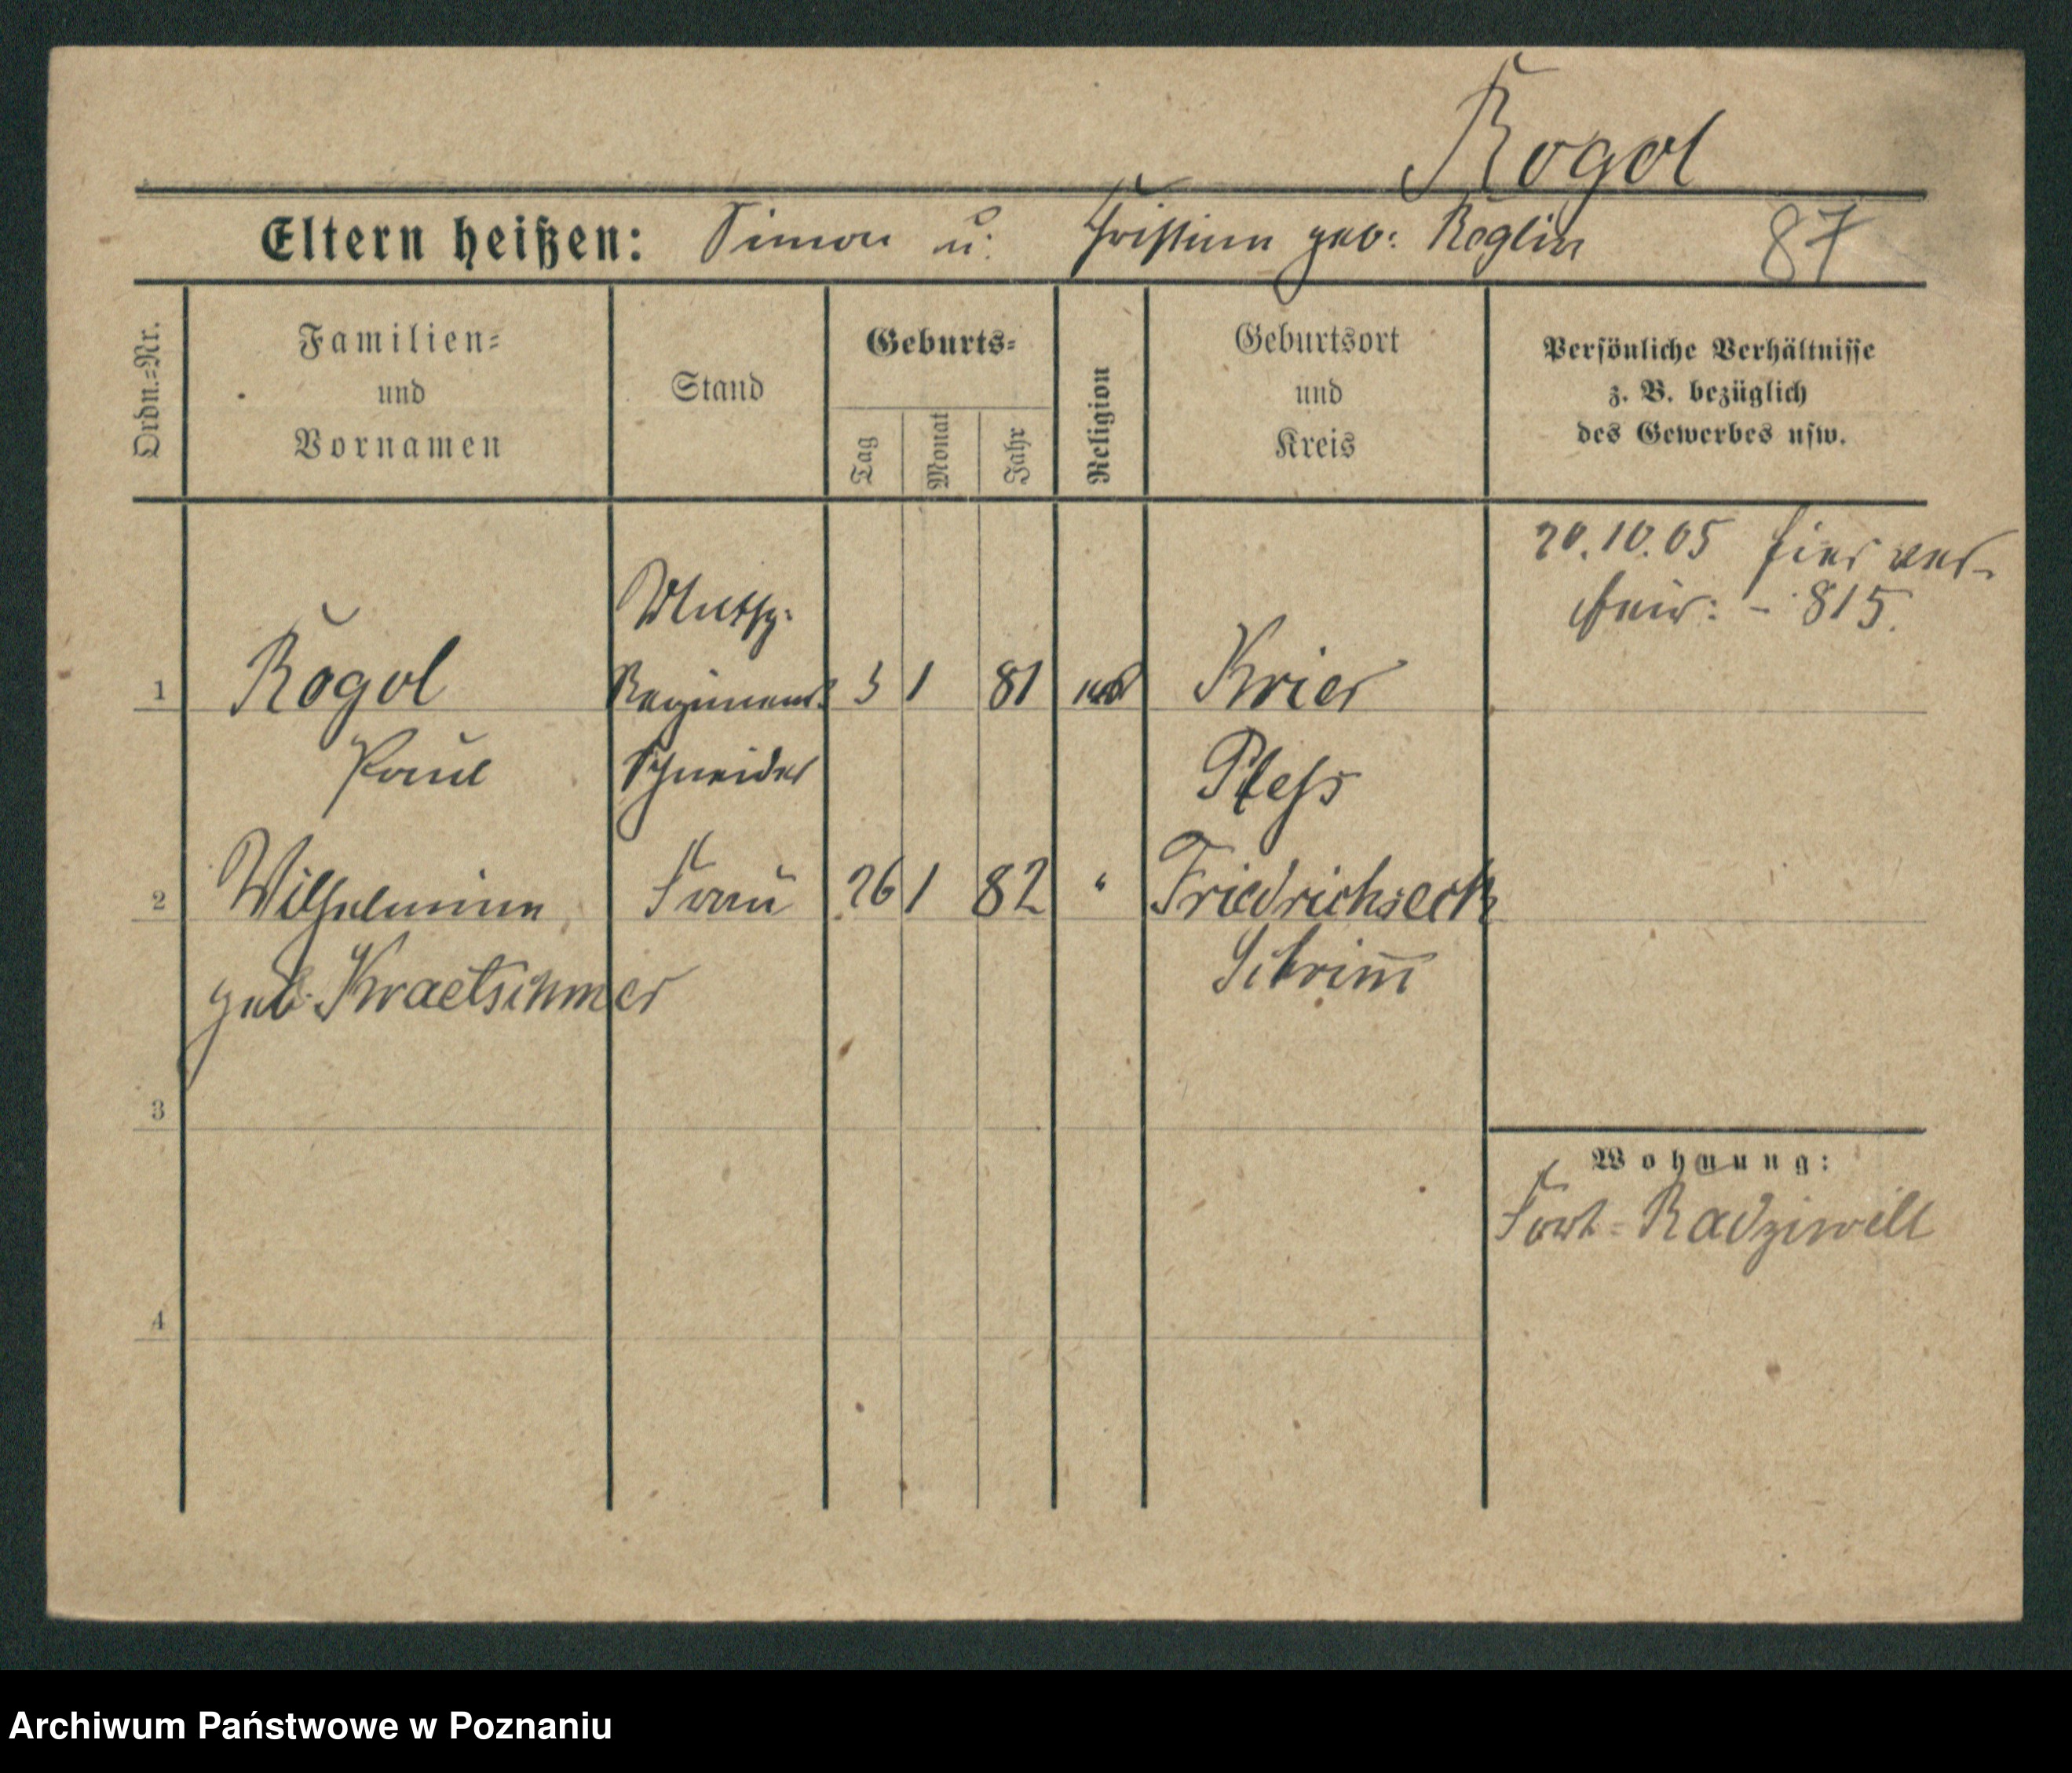 Rogol
Eltern heißen: Simon u. Christine geb: Röglin 87
Ordn.=Nr.
Familien=
und
Vornamen
Stand
Geburts=
Tag
Monat
Jahr
Religion
Geburtsort
und
Kreis
Persönliche Verhältnisse
z. B. bezüglich
des Gewerbes usw.
20.10.05 hier ver-
heir: - 815.
1 Rogol Regiments 3 1 81 Krier
Paul Schneider Pless
2 Wilhelmine Frau 26 1 82 " Friedrichseck
geb. Kraetschmer Schrim̅
3
Wohnung:
Fort-Radziwill
4
Archiwum Państwowe w Poznaniu